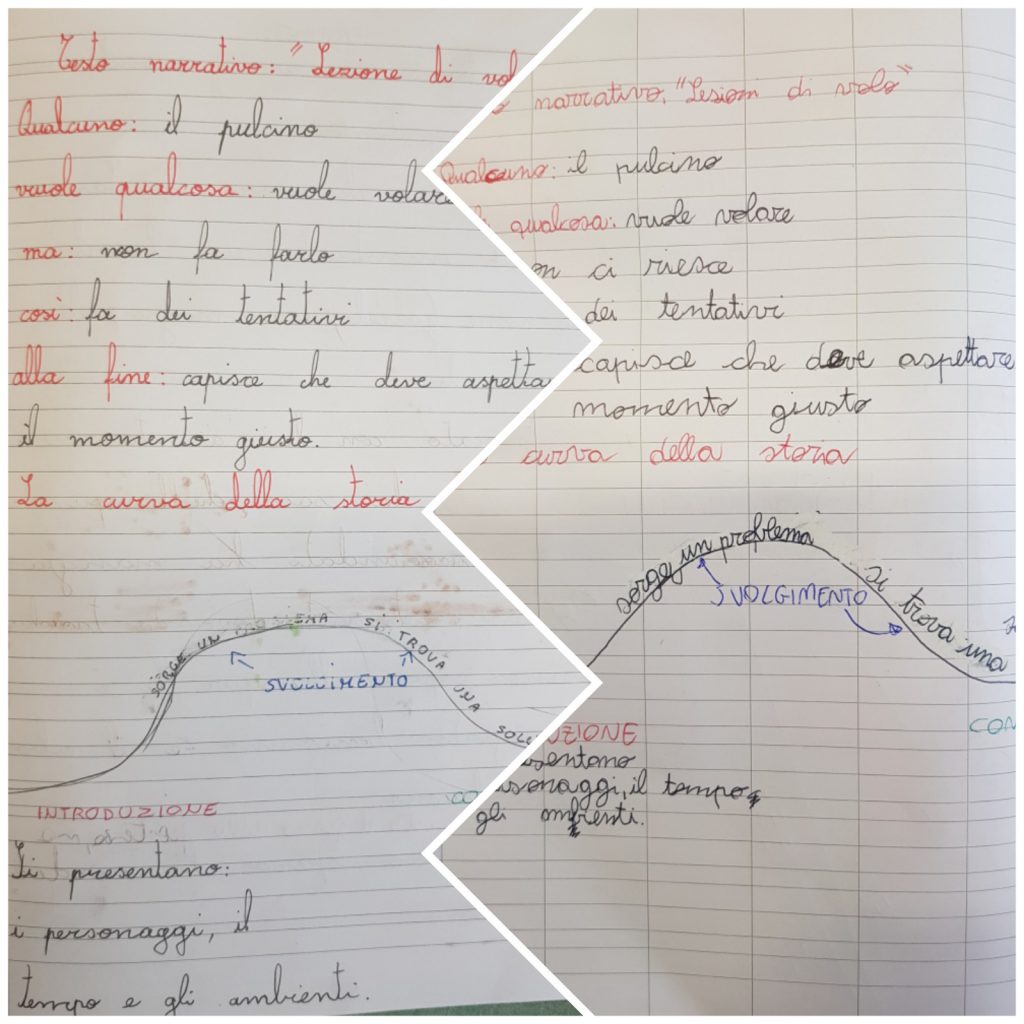 Testo narrativo: "Lezione di vol
Qualcuno: il pulcino
vuole qualcosa: vuole volare
ma: non fa farlo
così: fa dei tentativi
alla fine: capisce che deve aspetta
il momento giusto.
La curva della storia
SORGE UN SI TROVA UNA
SVOLGIMENTO
INTRODUZIONE
Si presentano:
i personaggi, il
tempo e gli ambienti.
narrativo. "Lesioni di volo"
Qualcuno: il pulcino
qualcosa: vuole volare
on ci riesce
dei tentativi
capisce che deve aspettare
momento giusto
curva della storia
sorge un problema si trova una
SVOLGIMENTO
CON
UZIONE
sentano
sonaggi, il tempo e
gli ambienti.